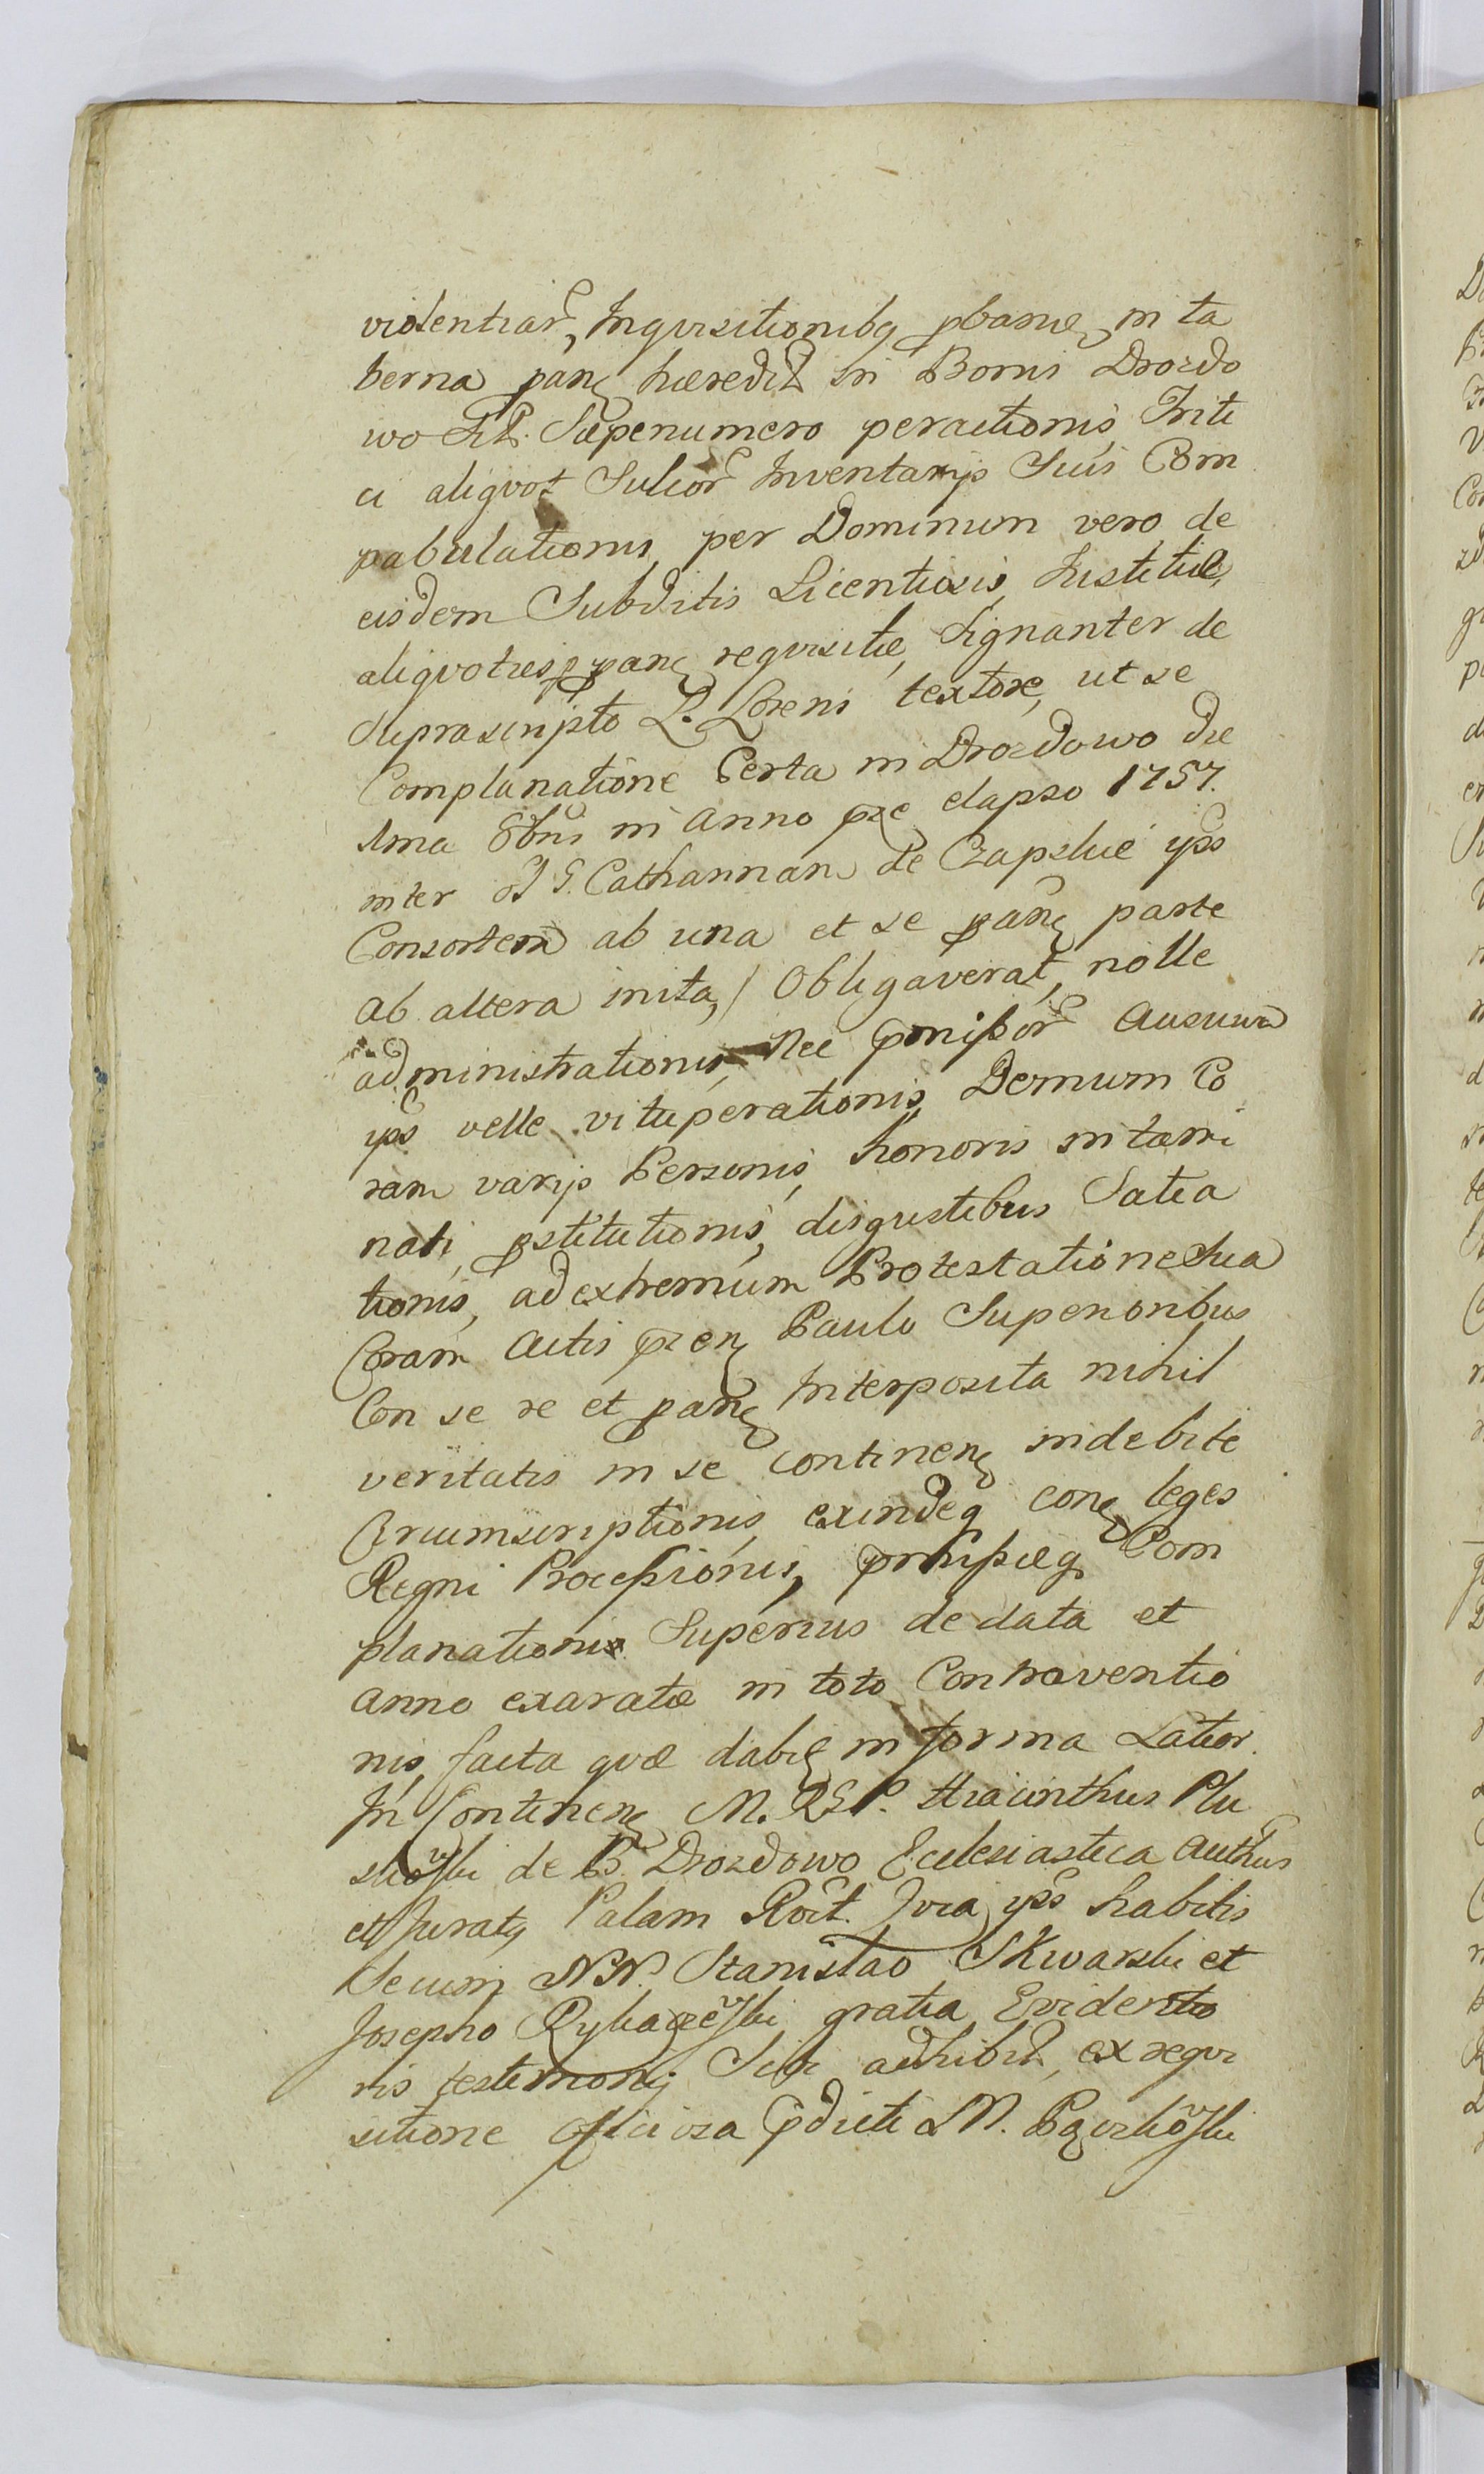 violentiar, Inqvisitionibq pbanie, in ta
berna pane haeredit In Bonis Drozdo
wo Sit. Saepenumero peractionis, Triti
ci aliqvot Sulcor Inventarijs Suis Com
pabulationis, per Dominum vero de
eisdem Subditis Licentiosis, Justitiae,
aliqvoties p pane reqvisitae, Signanter de
suprascripto L. Loreni textore, ut se
Complanatione Certa in Drozdowo die
1ma 8bris in Anno prae elapso 1757.
inter et G. Catharinam de Czapskie ips
Consortem ab una et se pane parte
ab altera inita, / Obligaverat, nolle
administrationis, Nec pmissor Ausuum
ips velle vituperationis, Demum Co
ram varijs Personis, honoris in tami
nati, pstitutionis, disgustibus Satia
tionis, ad extremum Protestatione Sua
Coram Actis przen Paulo Superioribus
Con se re et pane Interposita nihil
veritatis in se continen indebite
Circumscriptionis, exindeq con leges
Regni Processionis, pmissaeq Com
planationis Superius de data et
anno exaratae in toto Contraventio
nis, facta qvae dabit in forma Latior.
In Continen M. R. G. P. Hiacinthus Plu
skowski de B. Drozdowo Ecclesiastica Authus
et Juratq Palam Roit. Jvia, ips habitis
Secum NN. Stanislao Skwarski et
Josepho Rybaczewski gratia Evidentio
ris testimonij Sibi adhibit, ex reqvi
sitione officiosa pdicti LN.